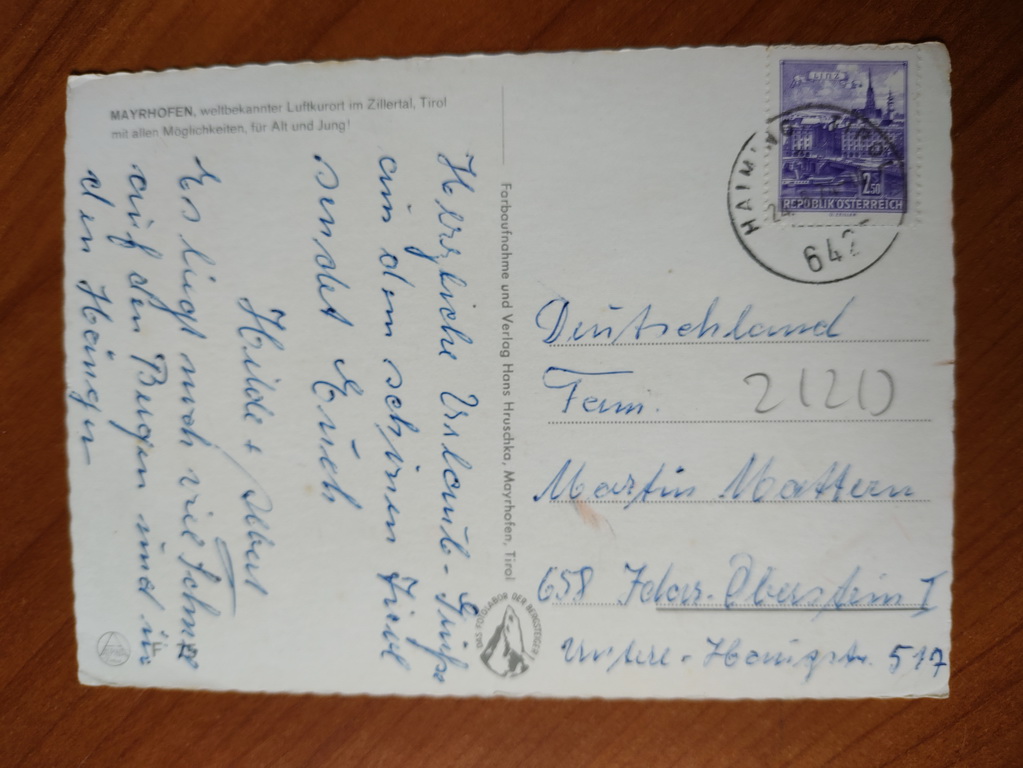 MAYRHOFEN, weltbekannter Luftkurort im Zillertal, Tirol
mit allen Möglichkeiten, für Alt und Jung!
Herzliche Urlaub-Grüße
aus dem schönen Zirl
sendet Euch
Hilde + Albert
Es liegt noch viel Schnee
auf den Bergen und in
den
Farbaufnahme und Verlag Hans Hruschka, Mayrhofen, Tirol
DAS FOTOLABOR DER BERGSTEIGER
LINZ
2.50
REPUBLIK ÖSTERREICH
HAIMING
642
Deutschland
Fam. 2120
Martin Mattern
658 Idar-Oberstein I
Untere-Hohlstr. 517